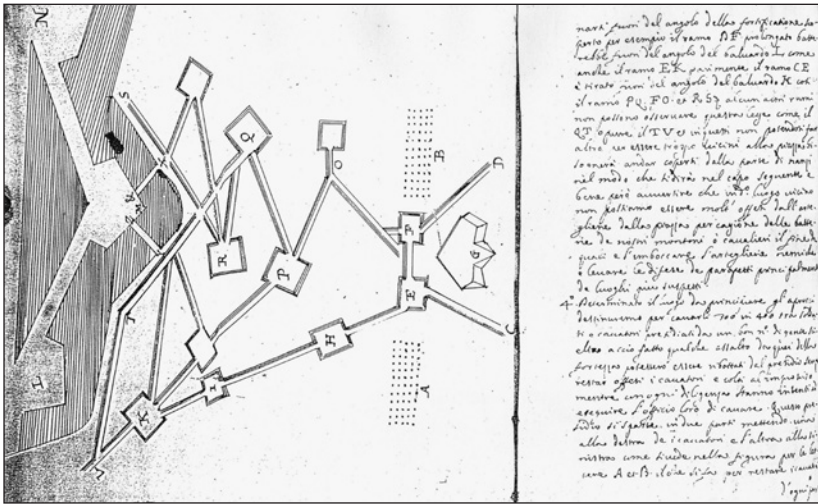 narsi fuori del angolo della fortificatione so-
perto per esempio il ramo DF prolongato batte-
rebbe fuori del angolo del baluardo L come
anche il ramo EK parimente il ramo CE
è tirato fuori del angolo del baluardo K così
il ramo PQ, FO et RSZ alcun altri rami
non possono osservare questa legge come il
QT opure il TV et in questi non potendosi far
altro per essere troppo vicini alla piazza bi-
sognerà andar coperti dalla parte di
nel modo che si dirà nel capo seguente e
bene però avvertire che in d.º luogo vicino
non possiamo essere molto offesi dall'arti-
gliarie dalla piazza per cagione delle batte-
rie da nostri montoni o cavalieri il fine de
quali è l'imboccare l'artegliaria nemiche
o levare le difese da parapetti principalmente
da luoghi più suspetti
4.º Determinato il luogo da principiare gli aprocci
destineremo per cavarli 300 in 400 tra solda-
ti o cavatori presidiati da un bon nº di gente
acciò fatto qualche assalto da quei della
forsezza potessero essere ributtati dal presidio
restar offesi i cavatori e colà
mentre con ogni diligenza stanno intenti ad
esequire l'officio loro di cavare. Questo pre-
sidio si sparte in due parti mettendo una
alla destra de i cavatori e l'altra alla si-
nistra come si vede nella figura per le let-
tere A et B. il che si fa per restare
d'ogni
N
S
Q
O
B
D
R
P
F
G
E
C
T
H
L
I
A
K
V